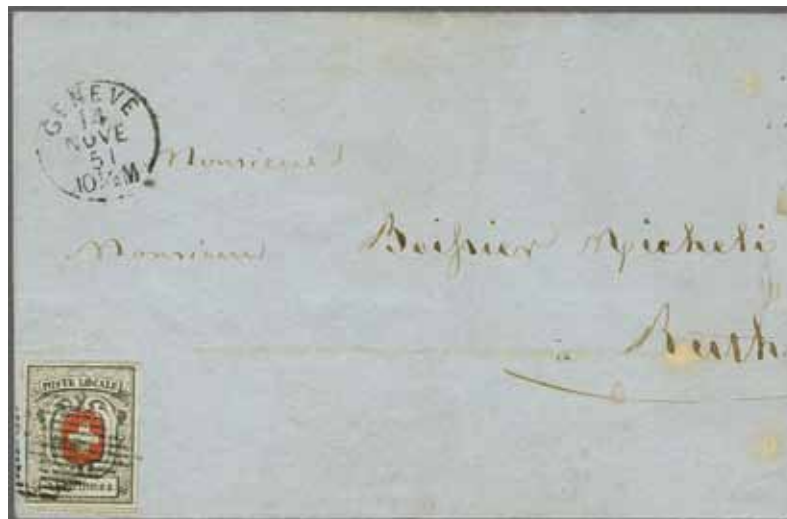 GENÈVE
14
NOVE
51
10½M
Monsieur
Monsieur Boissier Micheli
à Ruth
POSTE LOCALE